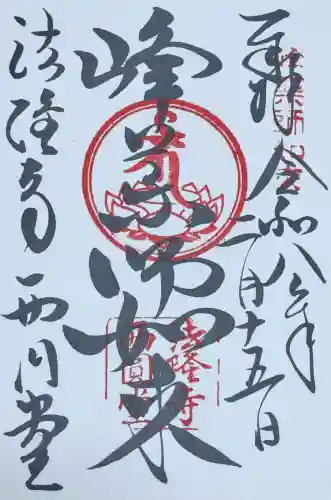 奉拝 令和八年二月十五日
峰薬師如来
法隆寺 西円堂
法隆寺
西圓堂